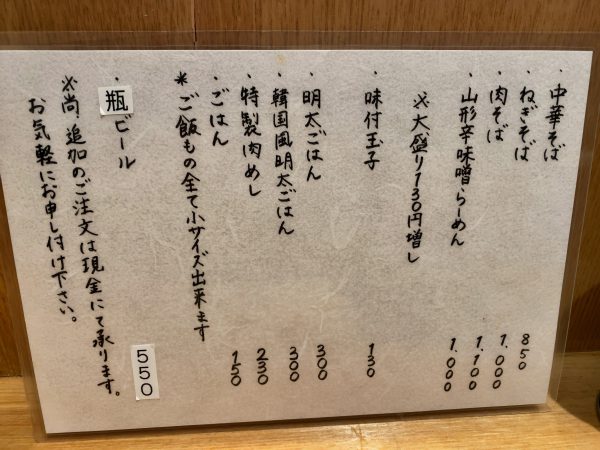 ・中華そば 850
・ねぎそば 1,000
・肉そば 1,100
・山形辛味噌らーめん 1,000
※大盛り130円増し
・味付玉子 130
・明太ごはん 300
・韓国風明太ごはん 300
・特製肉めし 230
・ごはん 150
*ご飯もの全て小サイズ出来ます
・瓶ビール 550
※尚、追加のご注文は現金にて承ります。
お気軽にお申し付け下さい。